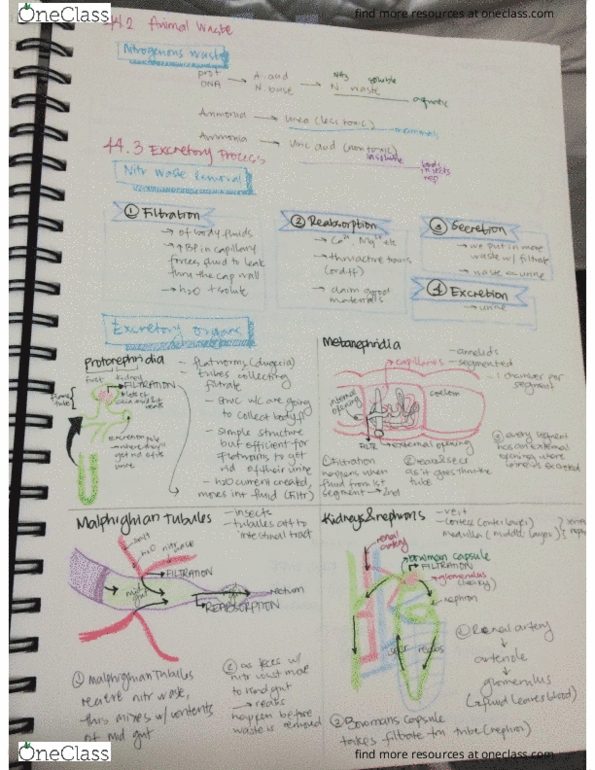 OneClass
find more resources at oneclass.com
44.2 Animal Waste
Nitrogenous waste
prot
DNA
A. acid
N base
NH3 soluble
N waste
aquatic
Ammonia → urea (less toxic)
mammals
Ammonia → Uric acid (non toxic)
insoluble
birds
insects
rep
44.3 Excretory Process
Nitr waste removal
① Filtration
→ of body fluids
→ ↑BP in capillary
forces fluid to leak
thru the cap wall
→ h2o + solute
② Reabsorption
→ thru active trans
(or diff)
→ claim good
materials
③ Secretion
→ we put in more
waste w/ filtrate
④ Excretion
→ urine
Excretory organs
Protonephridia
- flatworms
- tubes collecting
filtrate
to collect body fl
- simple structure
but efficient for
flatworms to get
rid of their urine
- h2o current created,
moves int. fluid (Filtr)
FILTRATION
flame
tube
get rid of
urine
Metanephridia
- annelids
- segmented
1 chamber per
segment
capillaries
internal
opening
coelom
external opening
① Filtration
happens when
fluid from 1st
segment → 2nd
as it goes thru the
tube
③ every segment
has an external
opening where
urine is excreted
Malphighian Tubules
- insects
- tubules att to
intestinal tract
salt
h2o
nitr waste
FILTRATION
mid
gut
rectum
REABSORPTION
① malphighian tubules
receive nitr waste,
this mixes w/ contents
of mid gut
② as feces w/
nitr waste move
to hind gut
→ reabs
happen before
waste is removed
Kidneys & nephrons
- vert
- cortex (outer layer)
medulla (middle layer)
renal
artery
bowman capsule
FILTRATION
glomerulus
nephron
reabs
① Renal artery
arteriole
glomerulus
(→ fluid leaves blood)
② Bowmans capsule
takes filtrate tm tube (nephron)
OneClass
find more resources at oneclass.com